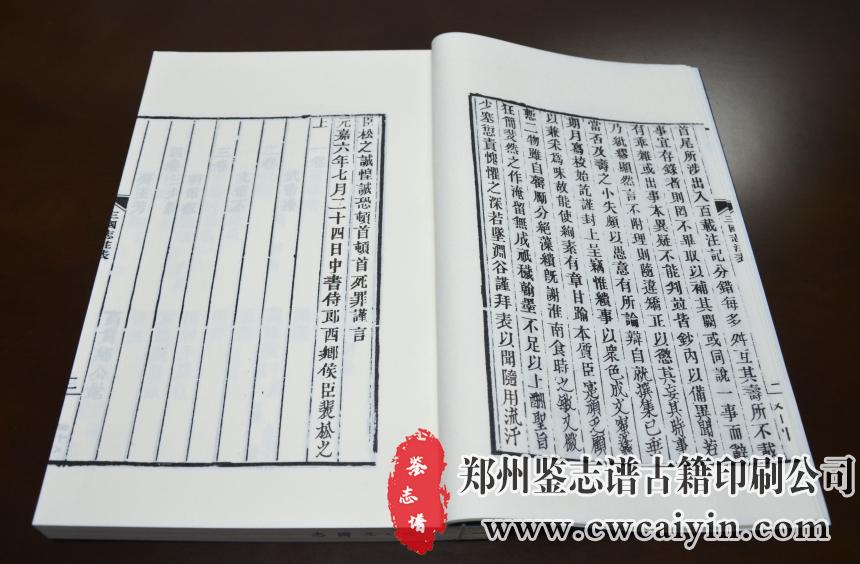 首尾所涉出入百載注記分錯每多舛互其壽所不載
事宜存錄者則罔不畢取以補其闕或同說一事而辭
有乖雜或出事本異疑不能判並皆鈔內以備異聞若
乃紕繆顯然言不附理則隨違矯正以懲其妄其時事
當否及壽之小失頗以愚意有所論辯自就撰集已垂
期月寫校始訖謹封上呈竊惟繢事以衆色成文蜜蜂
以兼采爲味故能使絢素有章甘踰本質臣寔頑乏顧
慙二物雖自罄勵分絕藻繢旣謝淮南食時之敏又微
狂簡斐然之作淹留無成祇穢翰墨不足以上酬聖旨
少塞愆責愧懼之深若墜淵谷謹拜表以聞隨用流汗
三國志注表
二
臣松之誠惶誠恐頓首頓首死罪謹言
元嘉六年七月二十四日中書侍郎西鄉侯臣裴松之
上
三國志注表
二
鉴志谱
郑州鉴志谱古籍印刷公司
www.cwcaiyin.com